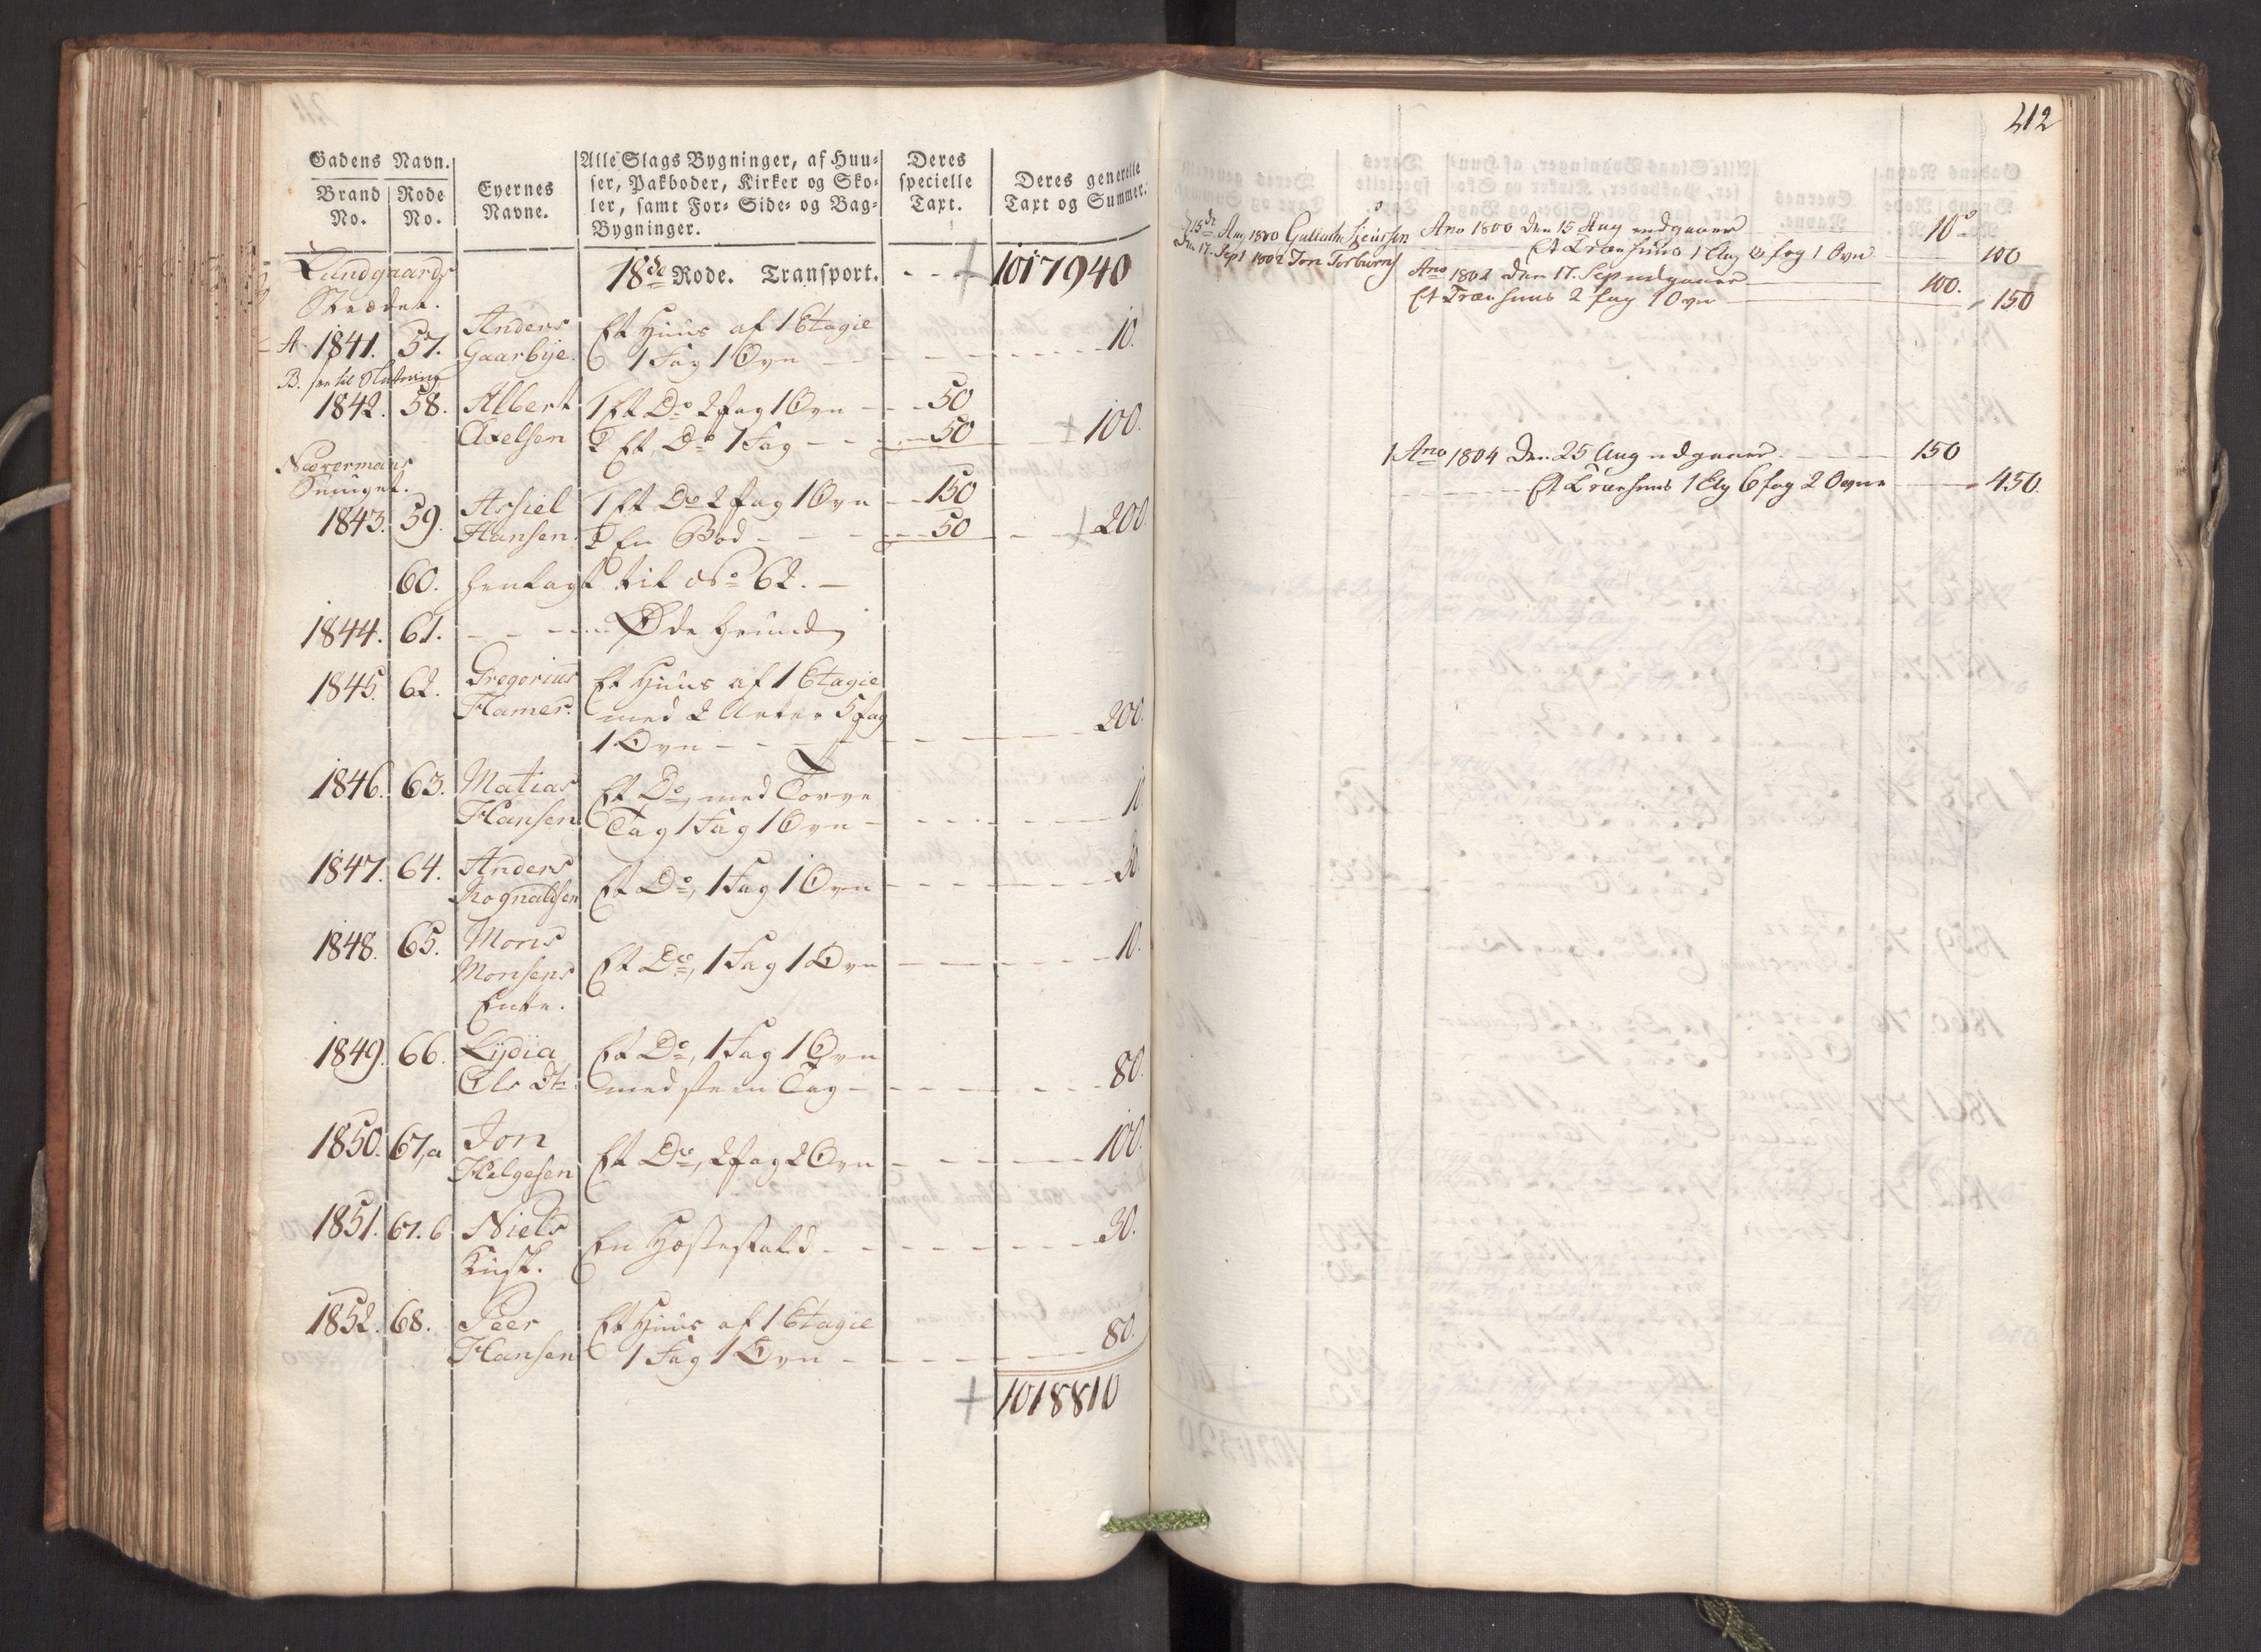 Gadens Navn.
Brand No. Rode No. Eyernes Navne. Alle Slags Bygninger, af Huu-
ser, Pakboder, Kirker og Sko-
ler, samt For- Side- og Bag-
Bygninger. Deres specielle Taxt. Deres generelle Taxt og Summer.
Lundgaards 18de Rode. Transport. - - 1017940
Strædet.
Anders Et Huus af 1 Etagie
A 1841. 57. Gaarbye. 1 Fag 1 Ovn - - - 10.
B.
1842. 58. Albert 1 Et Do 2 Fag 1 Ovn - - 50
Axelsen 2 Et Do 1 Fag - - - 50 - - 100.
Smuget.
Assiel 1 Et Do 2 Fag 1 Ovn - - 150
1843. 59. Hansen. 2 En Bod - - - 50 - - 200.
60. henlagt til No 62.
1844. 61. - - - Øde Grund
1845. 62. Gregorius Et Huus af 1 Etagie
Hamer. med 2 5 Fag
1 Ovn - - - 200.
1846. 63. Matias Et Do, med Torve
Hansen Tag 1 Fag 1 Ovn - - - 10
1847. 64. Anders
Rognaldsen Et Do, 1 Fag 1 Ovn - - - 30.
1848. 65. Mons
Monsens Et Do, 1 Fag 1 Ovn - - - 10.
Enke.
1849. 66. Lydia Et Do, 1 Fag 1 Ovn
Ols Dtr. med steen Tag - - - 80.
1850. 67,a Jon
Helgesen Et Do, 2 Fag 2 Ovn - - - 100.
1851. 67.b Niels En Hestestald - - - 30.
Kusk.
1852. 68. Peer Et Huus af 1 Etagie
Hansen 1 Fag 1 Ovn - - - 80.
1018810
412
15de Aug 1800 Ano 1800 den 15 Aug indgaaer 10
Et Træehuus 1 Etg fag 1 Ovn 100
Den 17. Sept 1802 Jon Ano 1802 den 17. Sep indgaaer 100.
Et Træehuus 2 fag 1 Ovn 150
1 Ano 1804 den 25 Aug udgaaer. 150
Et Træehuus 1 Etg 6 fag 2 Ovne 450.